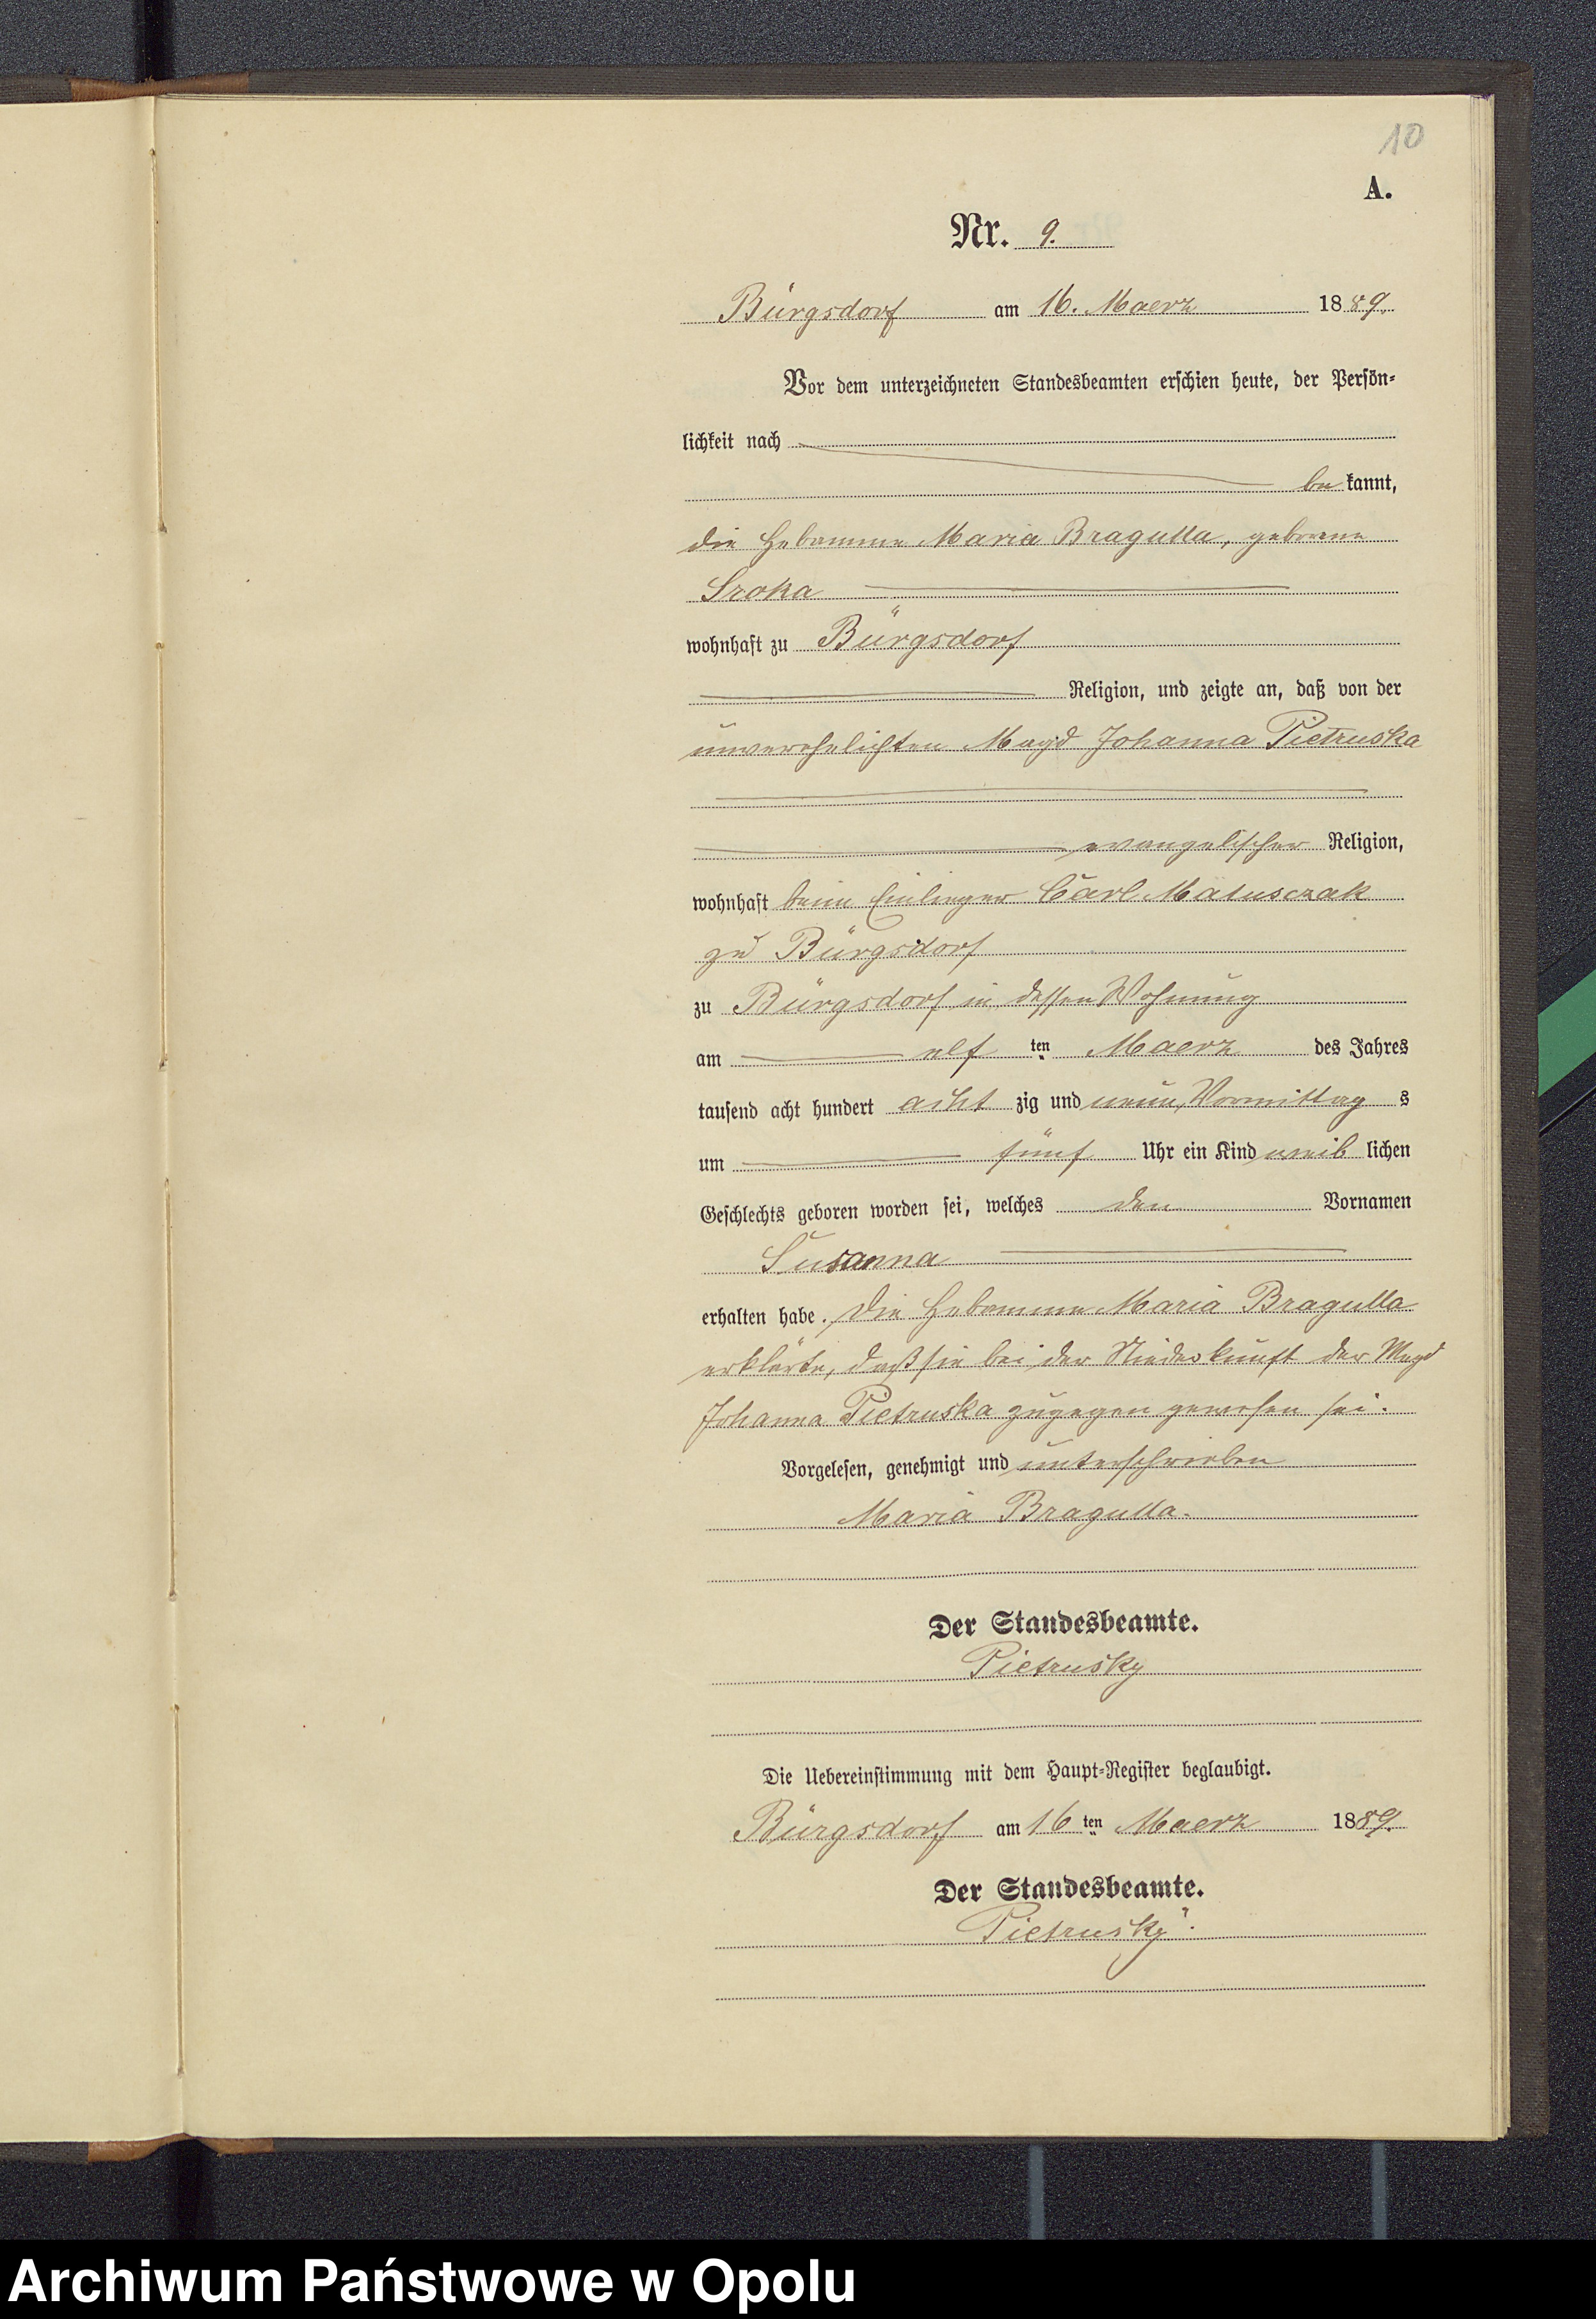 10
A.
Nr. 9.
Bürgsdorf am 16. Maerz 1889.
Vor dem unterzeichneten Standesbeamten erschien heute, der Persön-
lichkeit nach
be kannt,
die Hebamme Maria Bragulla, geborene
Sroka
wohnhaft zu Bürgsdorf
Religion, und zeigte an, daß von der
unverehelichten Magd Johanna Pietruska
evangelischer Religion,
wohnhaft beim Einlieger Carl Matusczak
zu Bürgsdorf
zu Bürgsdorf in dessen Wohnung
am elf ten Maerz des Jahres
tausend acht hundert acht zig und neun, Vormittag s
um fünf Uhr ein Kind weib lichen
Geschlechts geboren worden sei, welches den Vornamen
Susanna
erhalten habe. Die Hebamme Maria Bragulla
erklärte, daß sie bei der Niederkunft der Magd
Johanna Pietruska zugegen gewesen sei.
Vorgelesen, genehmigt und unterschrieben
Maria Bragulla.
Der Standesbeamte.
Pietrusky
Die Uebereinstimmung mit dem Haupt-Register beglaubigt.
Bürgsdorf am 16 ten Maerz 1889.
Der Standesbeamte.
Pietrusky.
Archiwum Państwowe w Opolu